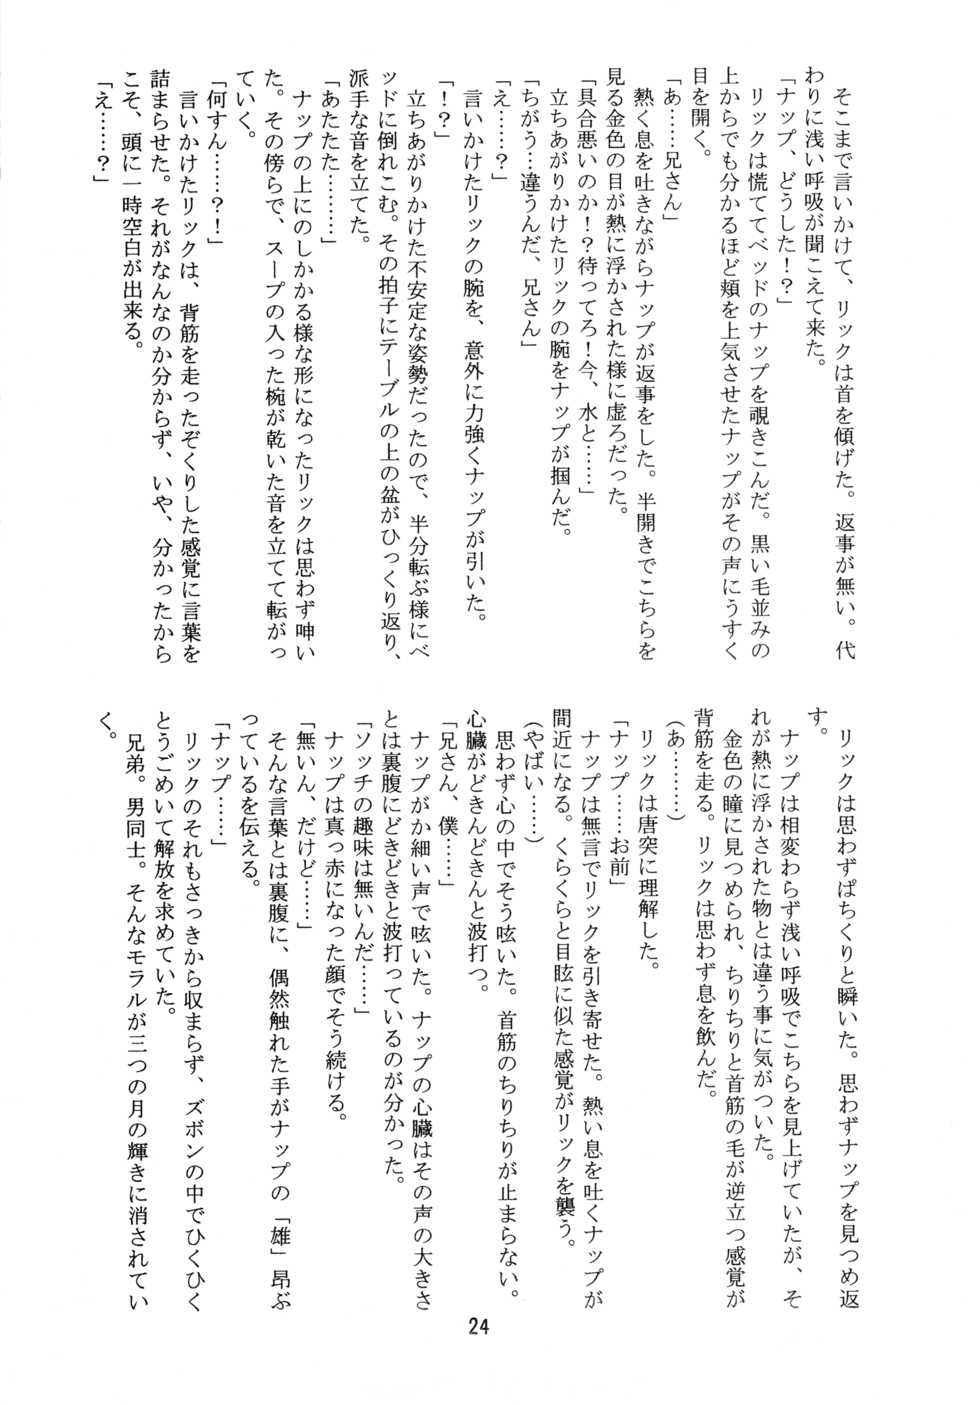 そこまで言いかけて、リックは首を傾げた。返事が無い。代
わりに浅い呼吸が聞こえて来た。
「ナップ、どうした！？」
リックは慌ててベッドのナップを覗きこんだ。黒い毛並みの
上からでも分かるほど頬を上気させたナップがその声にうすく
目を開く。
「あ……兄さん」
熱く息を吐きながらナップが返事をした。半開きでこちらを
見る金色の目が熱に浮かされた様に虚ろだった。
「具合悪いのか！？待ってろ！今、水と……」
立ちあがりかけたリックの腕をナップが掴んだ。
「ちがう…違うんだ、兄さん」
「え……？」
言いかけたリックの腕を、意外に力強くナップが引いた。
「！？」
立ちあがりかけた不安定な姿勢だったので、半分転ぶ様にベ
ッドに倒れこむ。その拍子にテーブルの上の盆がひっくり返り、
派手な音を立てた。
「あたたた………」
ナップの上にのしかかる様な形になったリックは思わず呻い
た。その傍らで、スープの入った椀が乾いた音を立てて転がっ
ていく。
「何すん……？！」
言いかけたリックは、背筋を走ったぞくりした感覚に言葉を
詰まらせた。それがなんなのか分からず、いや、分かったから
こそ、頭に一時空白が出来る。
「え……？」
リックは思わずぱちくりと瞬いた。思わずナップを見つめ返
す。
ナップは相変わらず浅い呼吸でこちらを見上げていたが、そ
れが熱に浮かされた物とは違う事に気がついた。
金色の瞳に見つめられ、ちりちりと首筋の毛が逆立つ感覚が
背筋を走る。リックは思わず息を飲んだ。
（あ………）
リックは唐突に理解した。
「ナップ……お前」
ナップは無言でリックを引き寄せた。熱い息を吐くナップが
間近になる。くらくらと目眩に似た感覚がリックを襲う。
（やばい……）
思わず心の中でそう呟いた。首筋のちりちりが止まらない。
心臓がどきんどきんと波打つ。
「兄さん、僕……」
ナップがか細い声で呟いた。ナップの心臓はその声の大きさ
とは裏腹にどきどきと波打っているのが分かった。
「ソッチの趣味は無いんだ……」
ナップは真っ赤になった顔でそう続ける。
「無いん、だけど……」
そんな言葉とは裏腹に、偶然触れた手がナップの「雄」昂ぶ
っているを伝える。
「ナップ……」
リックのそれもさっきから収まらず、ズボンの中でひくひく
とうごめいて解放を求めていた。
兄弟。男同士。そんなモラルが三つの月の輝きに消されてい
く。
24